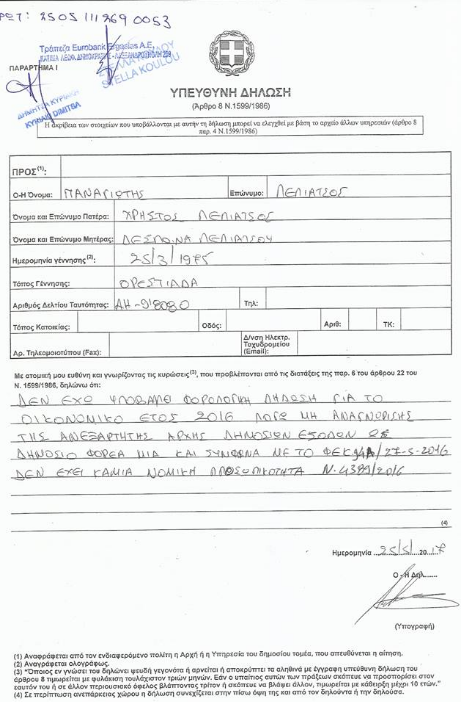 ΡΕΤ: 2505 111269 0053
Τράπεζα Eurobank Ergasias A.E.
ΠΑΡΑΡΤΗΜΑ I
STELLA KOULOU
ΥΠΕΥΘΥΝΗ ΔΗΛΩΣΗ
(Άρθρο 8 Ν.1599/1986)
Η ακρίβεια των στοιχείων που υποβάλλονται με αυτήν τη δήλωση μπορεί να ελεγχθεί με βάση το αρχείο άλλων υπηρεσιών (άρθρο 8
παρ. 4 Ν.1599/1986)
ΠΡΟΣ(1):
Ο-Η Όνομα: ΠΑΝΑΓΙΩΤΗΣ Επώνυμο: ΛΕΛΙΑΤΣΟΣ
Όνομα και Επώνυμο Πατέρα: ΧΡΗΣΤΟΣ ΛΕΛΙΑΤΣΟΣ
Όνομα και Επώνυμο Μητέρας: ΔΕΣΠΟΙΝΑ ΛΕΛΙΑΤΣΟΥ
Ημερομηνία γέννησης(2): 25/3/1975
Τόπος Γέννησης: ΟΡΕΣΤΙΑΔΑ
Αριθμός Δελτίου Ταυτότητας: ΑΗ-918080 Τηλ:
Τόπος Κατοικίας: Οδός: Αριθ: ΤΚ:
Αρ. Τηλεομοιοτύπου (Fax): Δ/νση Ηλεκτρ.
Ταχυδρομείου
(Email):
Με ατομική μου ευθύνη και γνωρίζοντας τις κυρώσεις(3), που προβλέπονται από τις διατάξεις της παρ. 6 του άρθρου 22 του
Ν. 1599/1986, δηλώνω ότι:
ΔΕΝ ΕΧΩ ΥΠΟΒΑΛΕΙ ΦΟΡΟΛΟΓΙΚΗ ΔΗΛΩΣΗ ΓΙΑ ΤΟ
ΟΙΚΟΝΟΜΙΚΟ ΕΤΟΣ 2016 ΛΟΓΩ ΜΗ ΑΝΑΓΝΩΡΙΣΗΣ
ΤΗΣ ΑΝΕΞΑΡΤΗΤΗΣ ΑΡΧΗΣ ΔΗΜΟΣΙΩΝ ΕΣΟΔΩΝ ΩΣ
ΔΗΜΟΣΙΟ ΦΟΡΕΑ ΜΙΑ ΚΑΙ ΣΥΜΦΩΝΑ ΜΕ ΤΟ ΦΕΚ 94Α/27-5-2016
ΔΕΝ ΕΧΕΙ ΚΑΜΙΑ ΝΟΜΙΚΗ ΠΡΟΣΩΠΙΚΟΤΗΤΑ Ν.4389/2016
(4)
Ημερομηνία 25/5/2017
Ο - Η Δηλ.
(Υπογραφή)
(1) Αναγράφεται από τον ενδιαφερόμενο πολίτη η Αρχή ή η Υπηρεσία του δημόσιου τομέα, που απευθύνεται η αίτηση.
(2) Αναγράφεται ολογράφως.
(3) "Όποιος εν γνώσει του δηλώνει ψευδή γεγονότα ή αρνείται ή αποκρύπτει τα αληθινά με έγγραφη υπεύθυνη δήλωση του
άρθρου 8 τιμωρείται με φυλάκιση τουλάχιστον τριών μηνών. Εάν ο υπαίτιος αυτών των πράξεων σκόπευε να προσπορίσει στον
εαυτόν του ή σε άλλον περιουσιακό όφελος βλάπτοντας τρίτον ή σκόπευε να βλάψει άλλον, τιμωρείται με κάθειρξη μέχρι 10 ετών."
(4) Σε περίπτωση ανεπάρκειας χώρου η δήλωση συνεχίζεται στην πίσω όψη της και υπογράφεται από τον δηλούντα ή την δηλούσα.